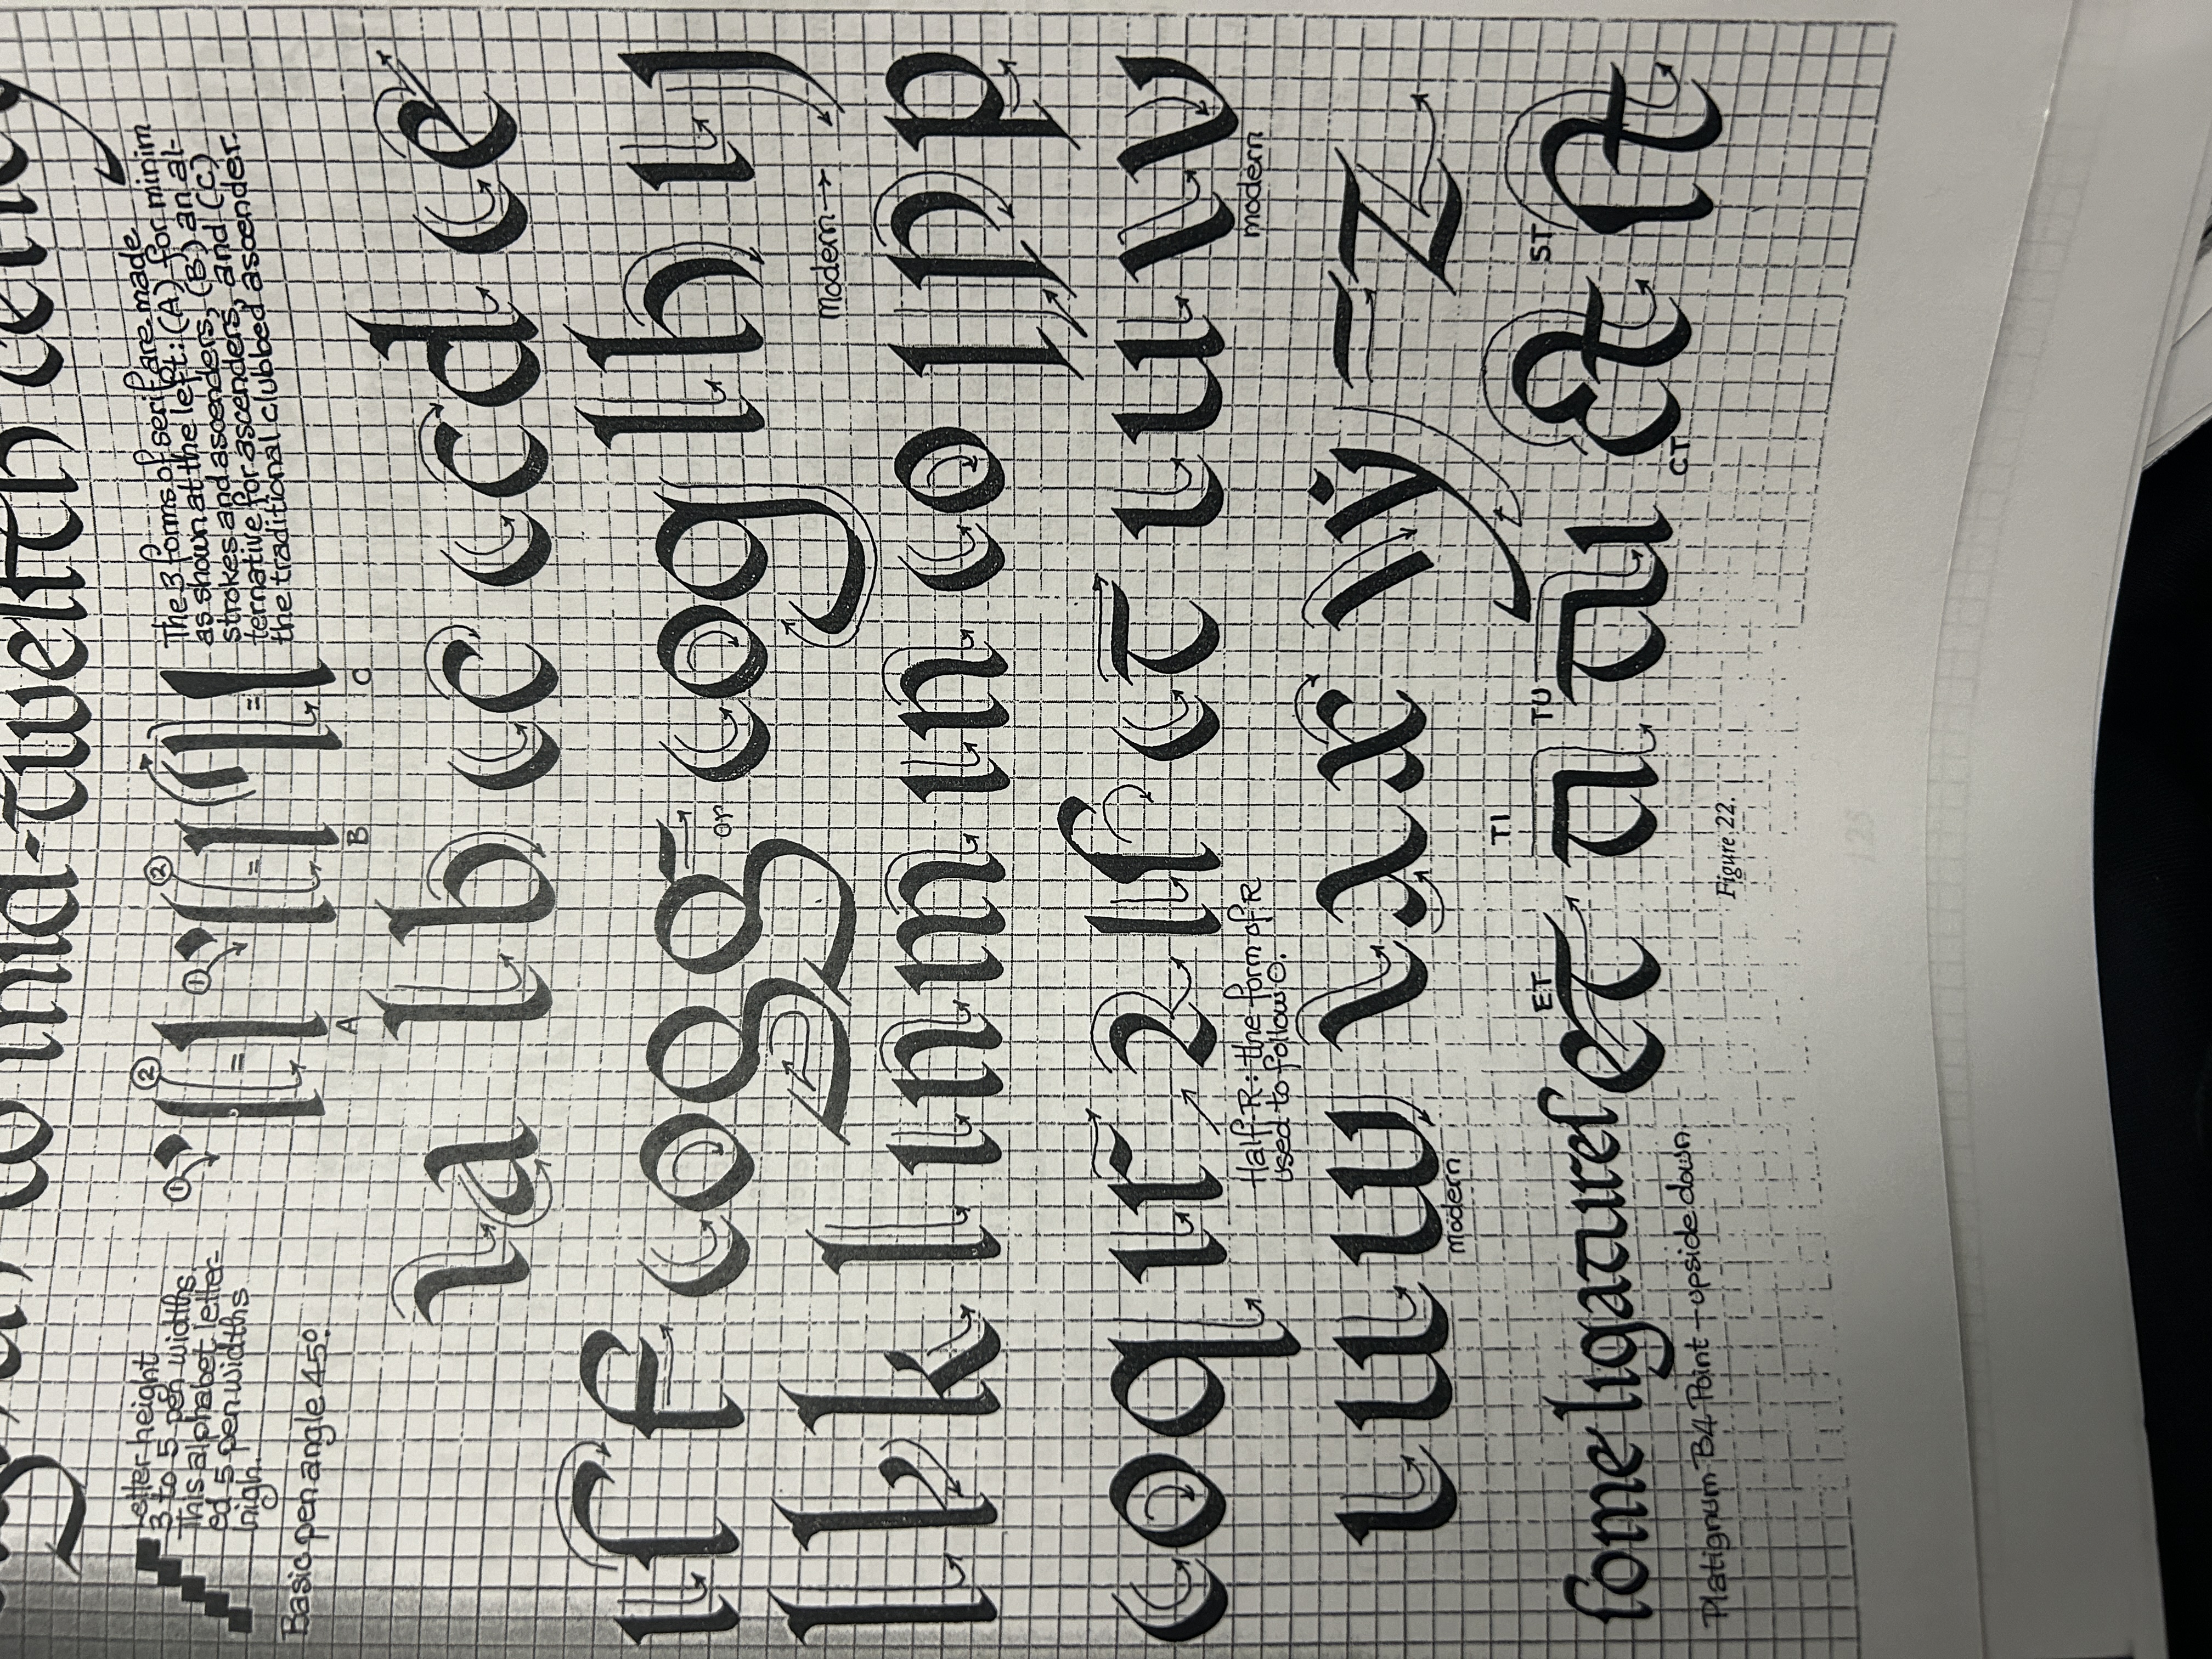 mid-twelfth century
Letter height
3 to 5 pen widths.
This alphabet letter-
ed 5 pen widths
high.
Basic pen angle 45°.
① ② = A
① ② = B
= C
The 3 forms of serif are made
as shown at the left: (A) for minim
strokes and ascenders, (B) an al-
ternative for ascenders, and (C)
the traditional clubbed ascender.
a b c d e
f g or g h j
Modern→
k l m n o p
q r 2 ſ t u v
Half R: the form of R
used to follow O.
modern
w x y z
modern
ET TI TU CT ST
ſome ligatureſ
Platignum B4 Point – upside down
Figure 22.